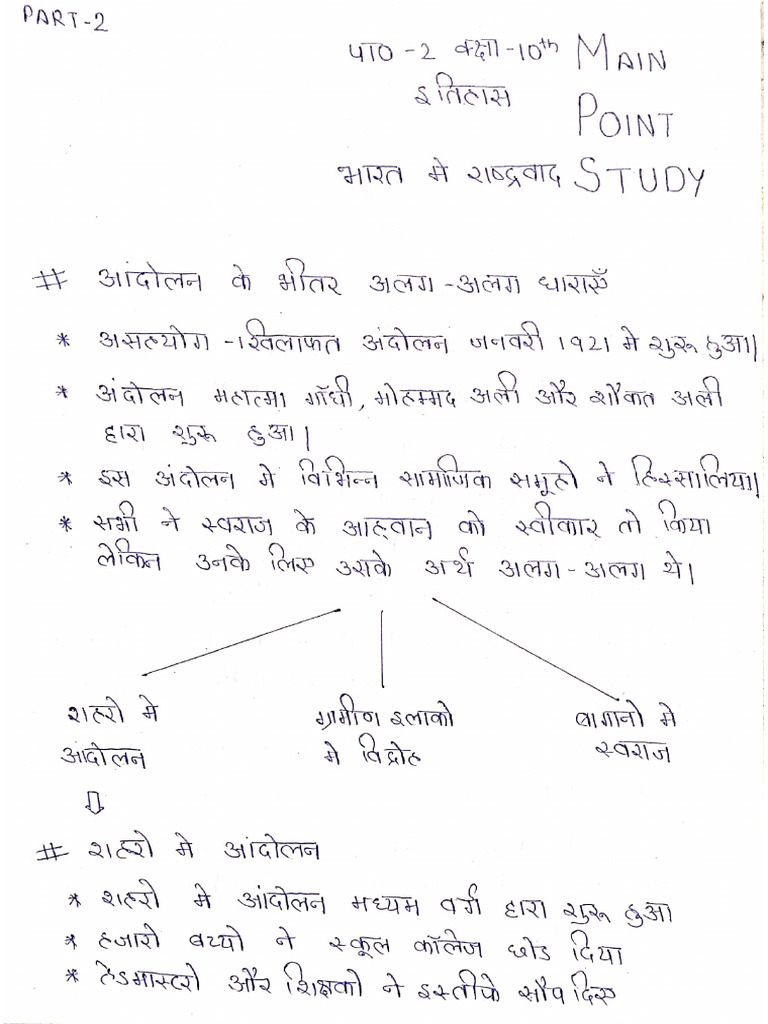 PART-2
पाठ-2 कक्षा-10th MAIN
इतिहास POINT
भारत मे राष्ट्रवाद STUDY
# आंदोलन के भीतर अलग-अलग धाराएँ
* असहयोग-खिलाफत अंदोलन जनवरी 1921 मे शुरू हुआ।
* अंदोलन महात्मा गाँधी, मोहम्मद अली और शौकत अली
द्वारा शुरू हुआ।
* इस अंदोलन मे विभिन्न सामाजिक समूहो ने हिस्सा लिया।
* सभी ने स्वराज के आह्वान को स्वीकार तो किया
लेकिन उनके लिए उसके अर्थ अलग-अलग थे।
शहरो मे ग्रामीण इलाको बागानो मे
आंदोलन मे विद्रोह स्वराज
# शहरो मे आंदोलन
* शहरो मे आंदोलन मध्यम वर्ग द्वारा शुरू हुआ
* हजारो बच्चो ने स्कूल कॉलेज छोड दिया
* हेडमास्टरो और शिक्षको ने इस्तीफे सौप दिए